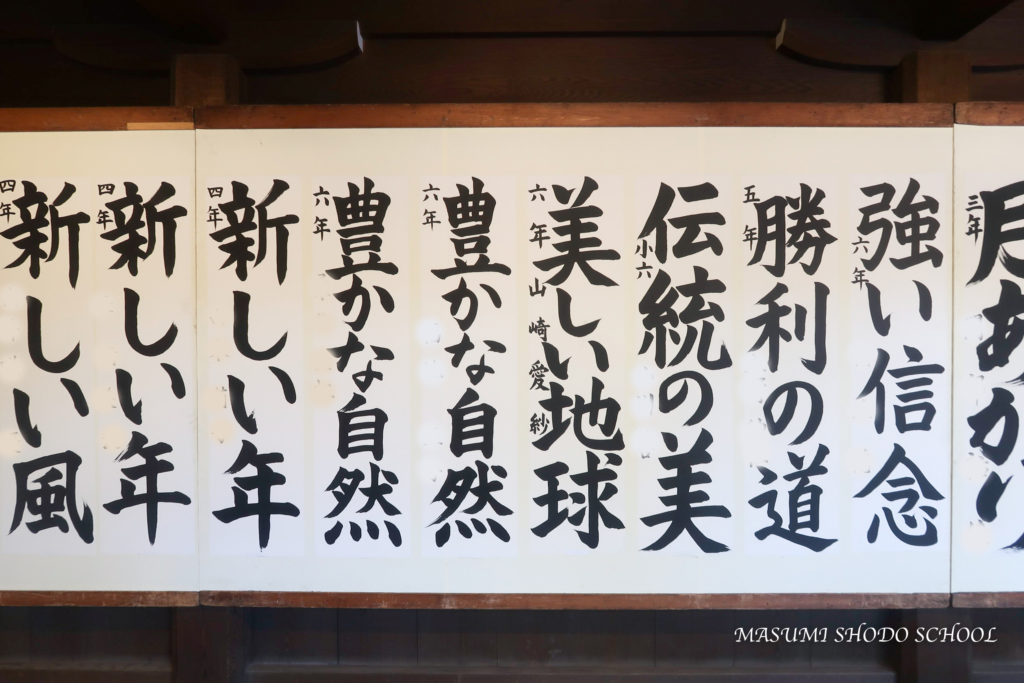 月あかり
三年
強い信念
六年
勝利の道
五年
伝統の美
小六
美しい地球
六年山崎愛紗
豊かな自然
六年
豊かな自然
六年
新しい年
四年
新しい年
四年
新しい風
四年
MASUMI SHODO SCHOOL